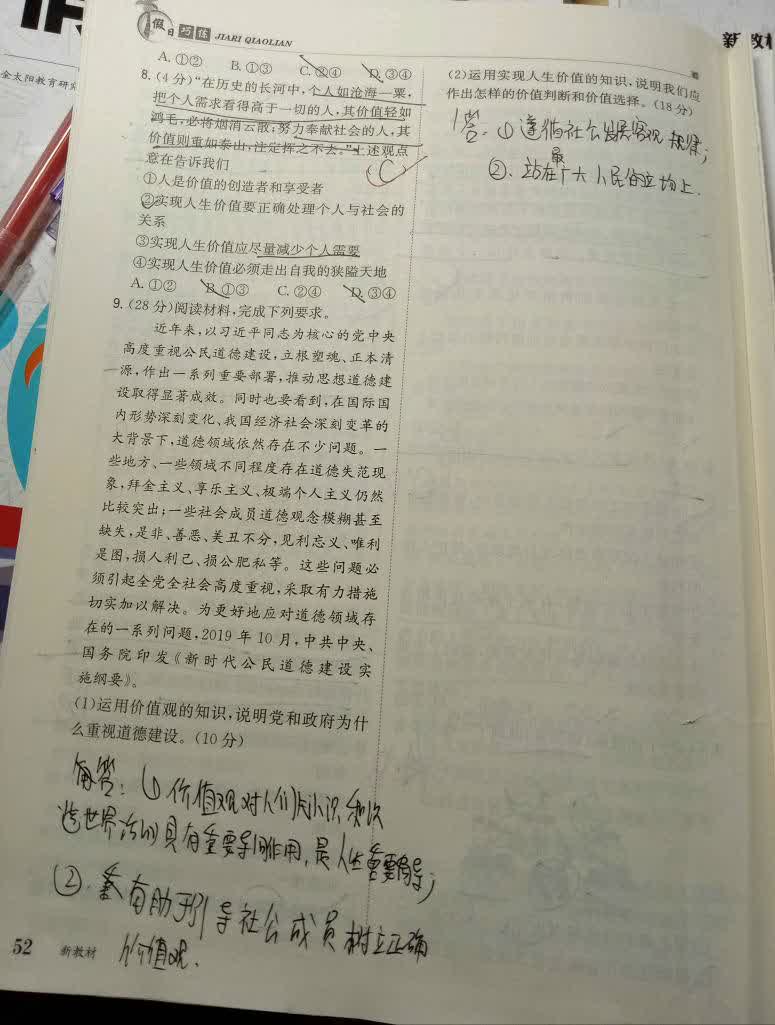 假日巧练 JIARI QIAOLIAN
新教材
全太阳教育研究
A.①② B.①③ C.②④ D.③④
8.(4分)“在历史的长河中,个人如沧海一粟,
把个人需求看得高于一切的人,其价值轻如
鸿毛,必将烟消云散;努力奉献社会的人,其
价值则重如泰山,注定挥之不去。”上述观点
意在告诉我们
(C)
①人是价值的创造者和享受者
②实现人生价值要正确处理个人与社会的
关系
③实现人生价值应尽量减少个人需要
④实现人生价值必须走出自我的狭隘天地
A.①② B.①③ C.②④ D.③④
9.(28分)阅读材料,完成下列要求。
近年来,以习近平同志为核心的党中央
高度重视公民道德建设,立根塑魂、正本清
源,作出一系列重要部署,推动思想道德建
设取得显著成效。同时也要看到,在国际国
内形势深刻变化、我国经济社会深刻变革的
大背景下,道德领域依然存在不少问题。一
些地方、一些领域不同程度存在道德失范现
象,拜金主义、享乐主义、极端个人主义仍然
比较突出;一些社会成员道德观念模糊甚至
缺失,是非、善恶、美丑不分,见利忘义、唯利
是图,损人利己、损公肥私等。这些问题必
须引起全党全社会高度重视,采取有力措施
切实加以解决。为更好地应对道德领域存
在的一系列问题,2019年10月,中共中央、
国务院印发《新时代公民道德建设实
施纲要》。
(1)运用价值观的知识,说明党和政府为什
么重视道德建设。(10分)
答:①价值观对人们认识和改
造世界活动具有重要导向作用,是人生重要向导;
②.有助于引导社会成员树立正确
价值观.
52 新教材
(2)运用实现人生价值的知识,说明我们应
作出怎样的价值判断和价值选择。(18分)
答:①遵循社会发展客观规律;
②.站在最广大人民的立场上.